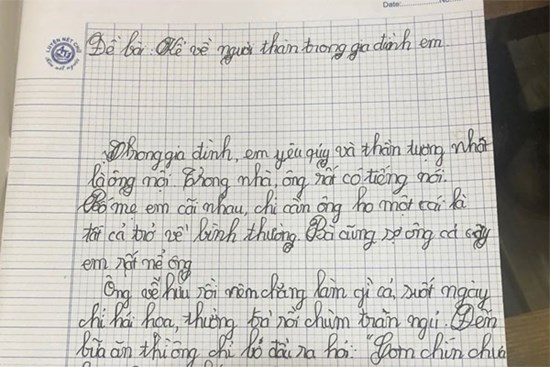 Date: No.
LUYỆN NÉT CHỮ
Rèn nết người
Đề bài: Kể về người thân trong gia đình em.
Trong gia đình, em yêu qúy và thần tượng nhất
là ông nội. Trong nhà, ông rất có tiếng nói.
Bố mẹ em cãi nhau, chỉ cần ông ho một cái là
tất cả trở về bình thường. Bà cũng sợ ông cả
em rất nể ông
Ông về hưu rồi nên chẳng làm gì cả, suốt ngày
chỉ hái hoa, thưởng trà rồi chùm trăn ngủ. Đến
bữa ăn thì ông chỉ ló đầu ra hỏi: "Cơm chín chưa